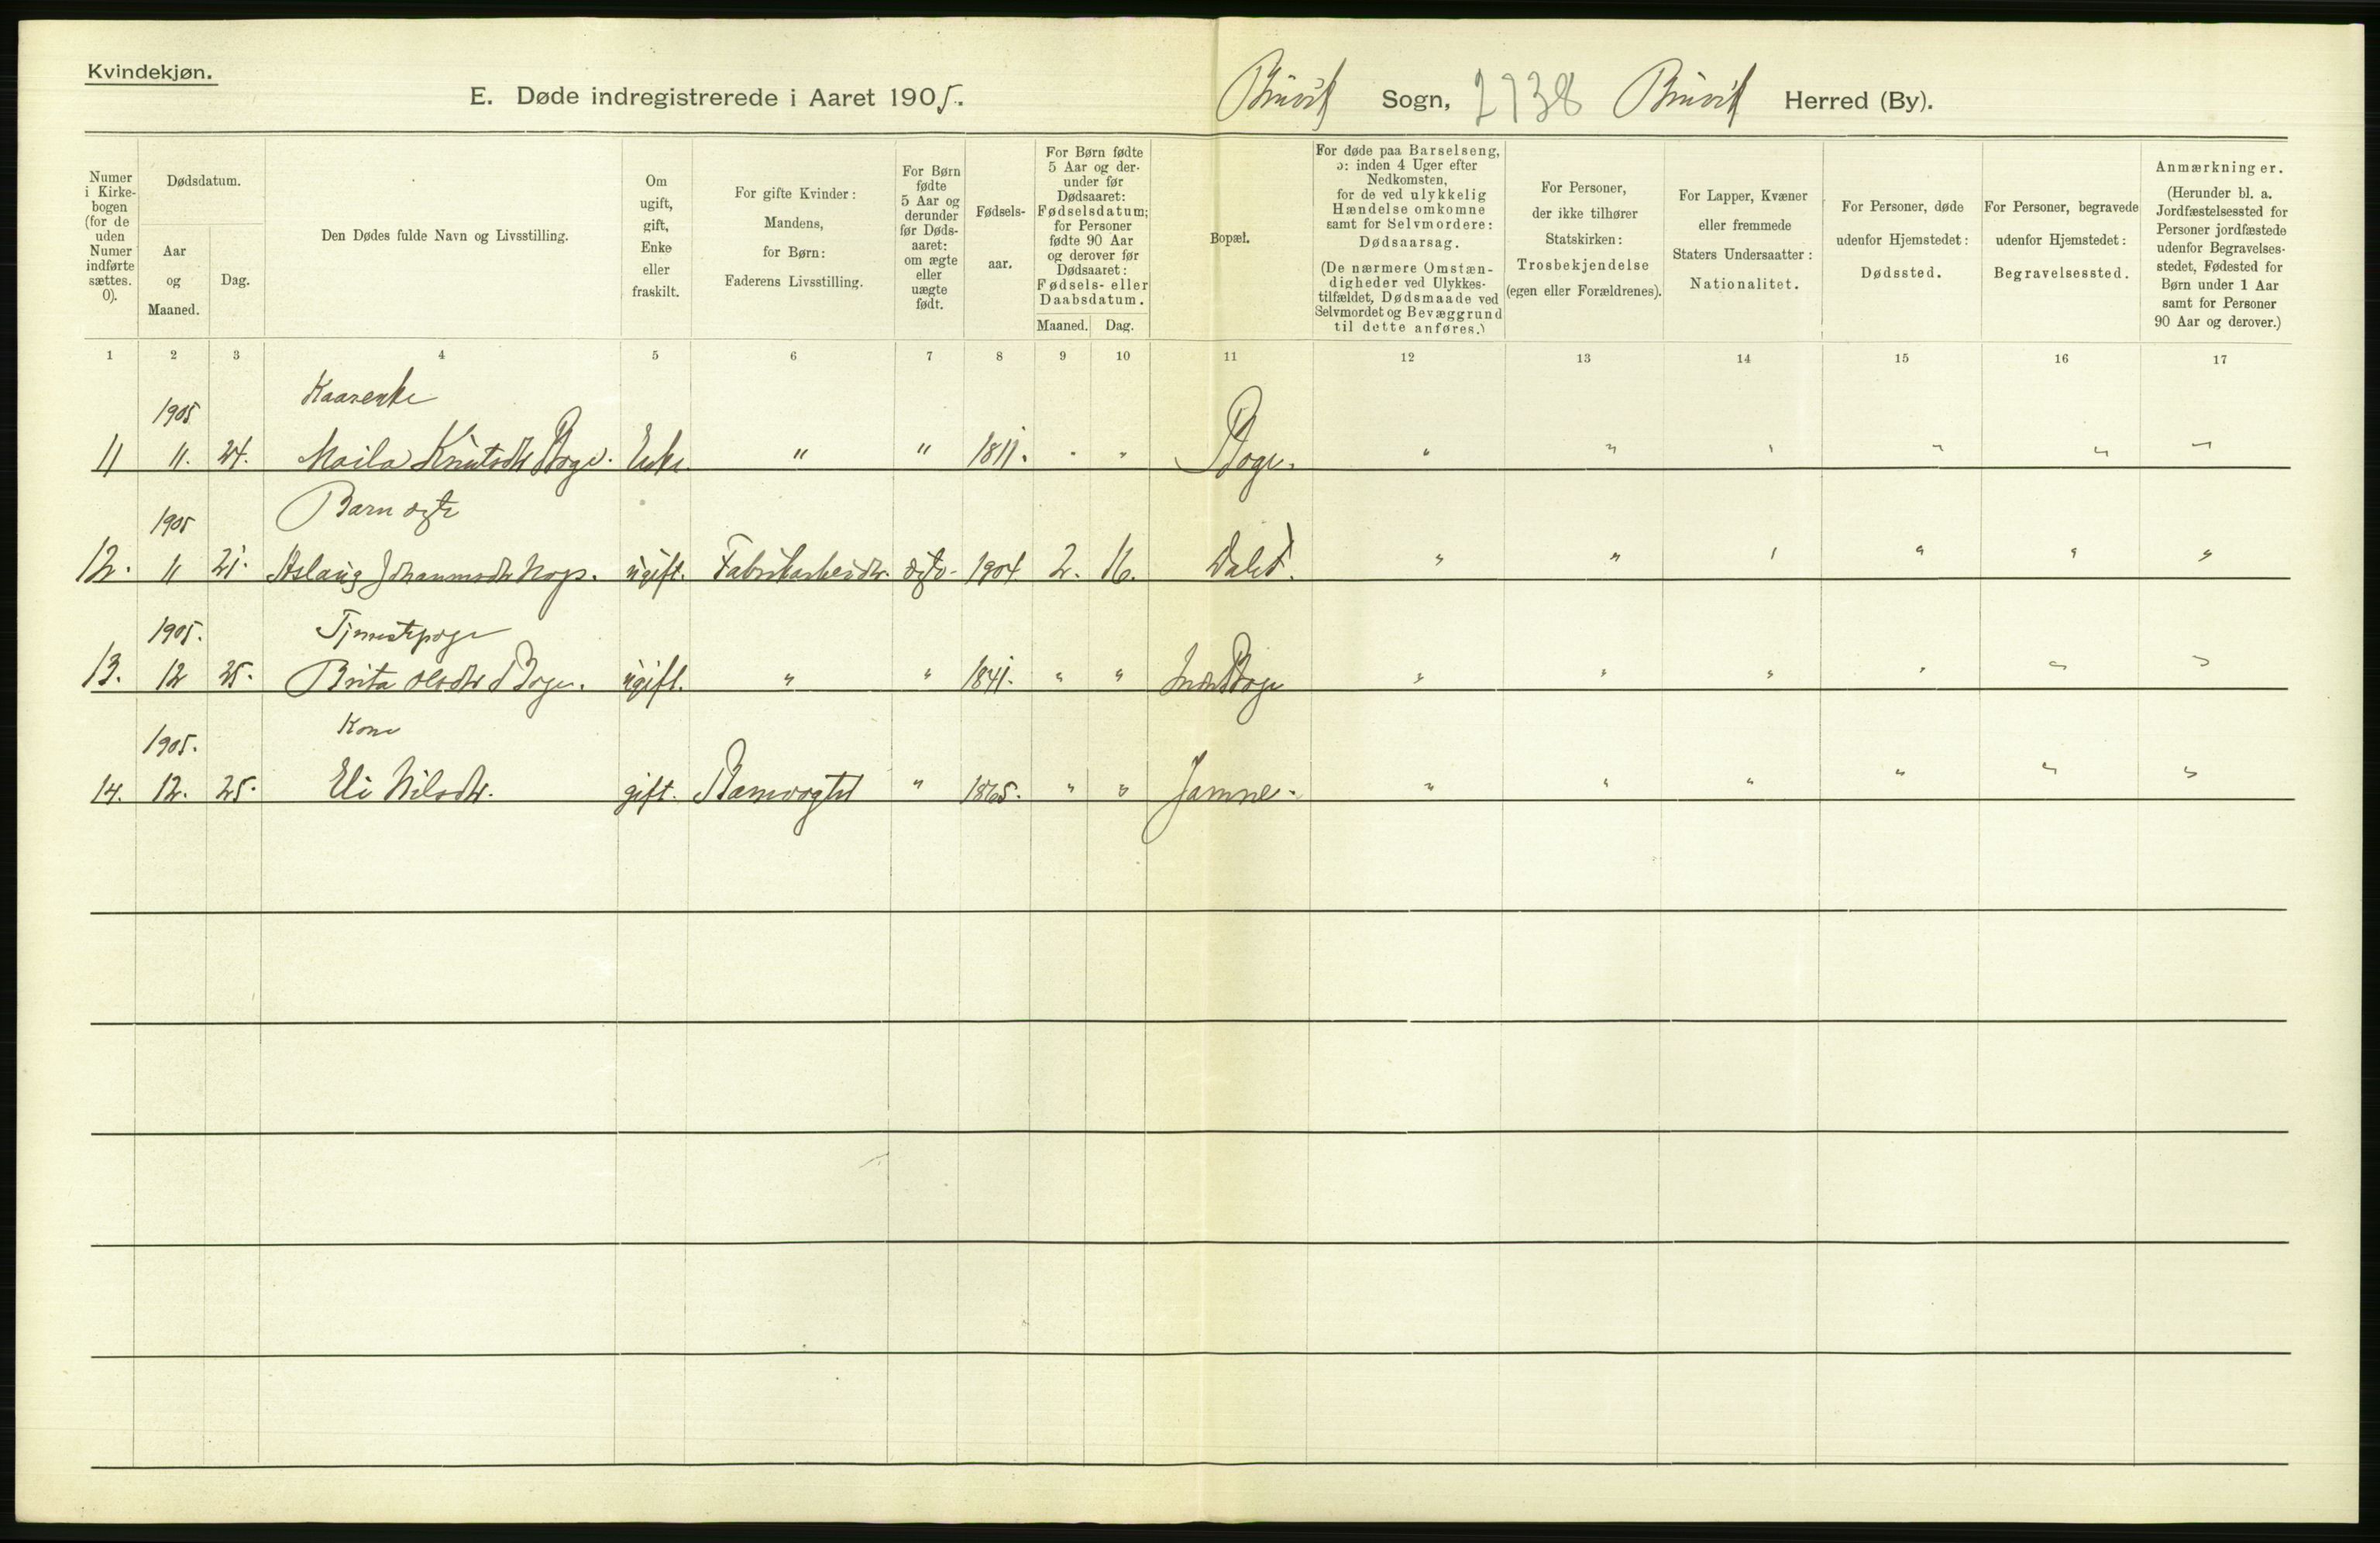 Kvindekjøn.
E. Døde indregistrerede i Aaret 1905.
Bruvik Sogn, 2738 Bruvik Herred (By).
Numer i Kirke-bogen (for de uden Numer indførte sættes. 0).
Dødsdatum.
Aar og Maaned.
Dag.
Den Dødes fulde Navn og Livsstilling.
Om ugift, gift, Enke eller fraskilt.
For gifte Kvinder: Mandens, for Børn: Faderens Livsstilling.
For Børn fødte 5 Aar og derunder før Døds-aaret: om ægte eller uægte født.
Fødsels-aar.
For Børn fødte 5 Aar og der-under før Dødsaaret: Fødselsdatum; for Personer fødte 90 Aar og derover før Dødsaaret: Fødsels- eller Daabsdatum.
Maaned. Dag.
Bopæl.
For døde paa Barselseng, ɔ: inden 4 Uger efter Nedkomsten, for de ved ulykkelig Hændelse omkomne samt for Selvmordere: Dødsaarsag. (De nærmere Omstæn-digheder ved Ulykkes-tilfældet, Dødsmaade ved Selvmordet og Bevæggrund til dette anføres.)
For Personer, der ikke tilhører Statskirken: Trosbekjendelse (egen eller Forældrenes).
For Lapper, Kvæner eller fremmede Staters Undersaatter: Nationalitet.
For Personer, døde udenfor Hjemstedet: Dødssted.
For Personer, begravede udenfor Hjemstedet: Begravelsessted.
Anmærkninger. (Herunder bl. a. Jordfæstelsessted for Personer jordfæstede udenfor Begravelses-stedet, Fødested for Børn under 1 Aar samt for Personer 90 Aar og derover.)
1 2 3 4 5 6 7 8 9 10 11 12 13 14 15 16 17
1905 Kaarenke
11 11. 24. Maila Knutsdtr Boge. Enke " " 1811. " " Boge. " " " " " "
1905 Barn ægte
12. 11 21. Aslaug Johannesdtr Nops. ugift. Fabrikarbeider. ægte 1904 2. 16. Dalet. " " " " " "
1905.
13. 12 25. Brita Olsdtr Boge. ugift. " " 1841. " " Boge " " " " " "
1905. Kone
14. 12. 25. Eli Nilsdtr. gift. Banevogter " 1865. " " Jamne. " " " " " "